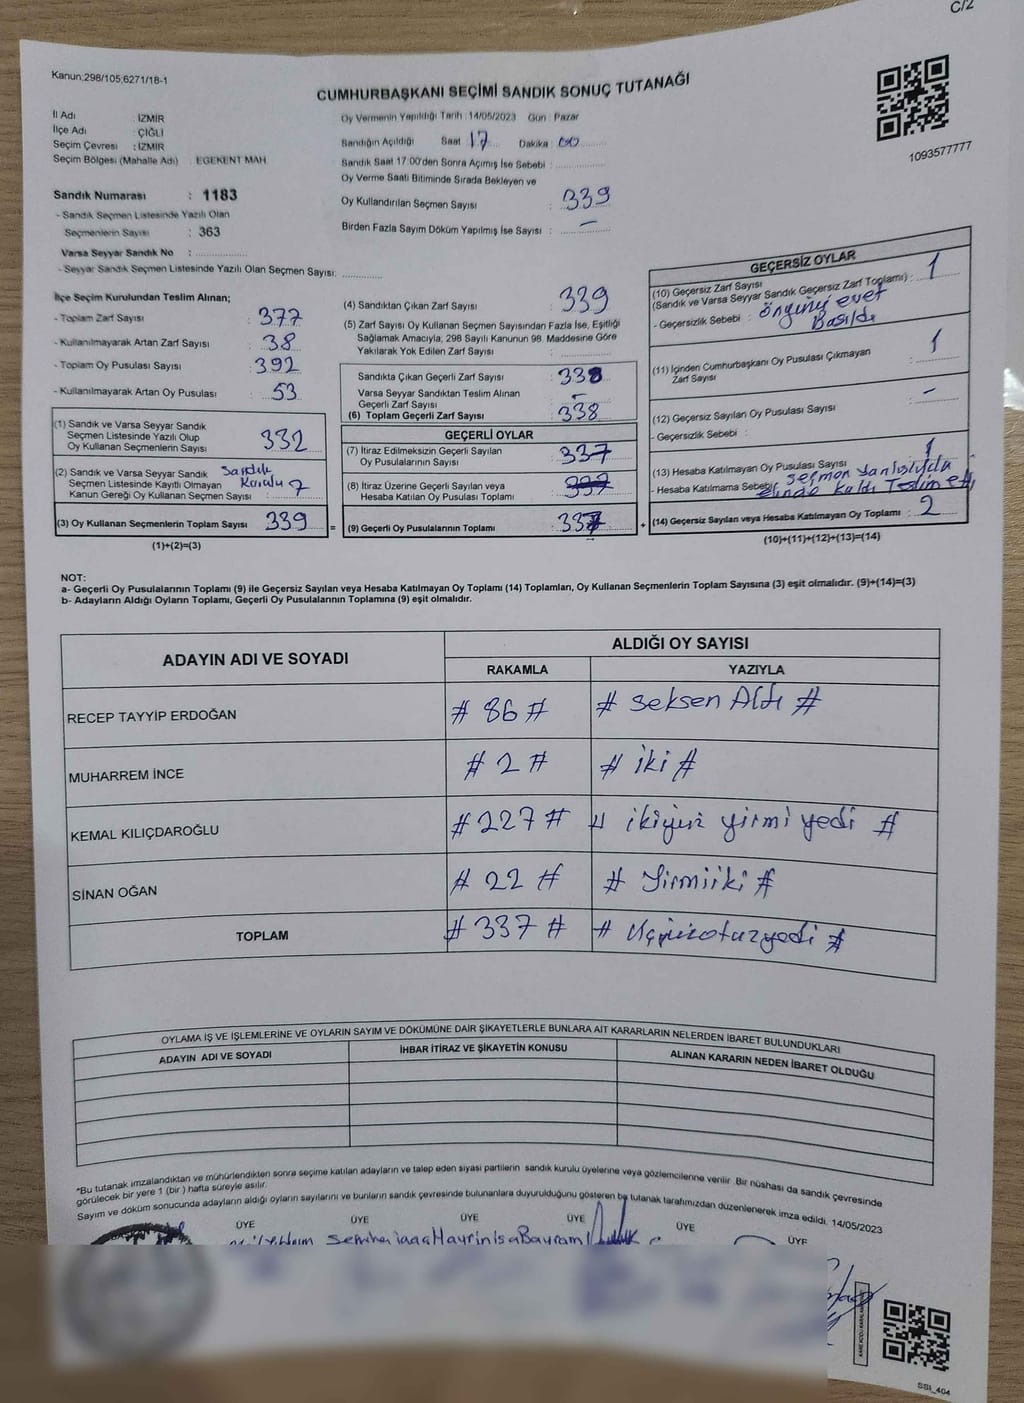 C/2
Kanun:298/105;6271/18-1
CUMHURBAŞKANI SEÇİMİ SANDIK SONUÇ TUTANAĞI
1093577777
İl Adı : İZMİR
İlçe Adı : ÇİĞLİ
Seçim Çevresi : İZMİR
Seçim Bölgesi (Mahalle Adı) : EGEKENT MAH.
Sandık Numarası : 1183
- Sandık Seçmen Listesinde Yazılı Olan
Seçmenlerin Sayısı : 363
Varsa Seyyar Sandık No :
- Seyyar Sandık Seçmen Listesinde Yazılı Olan Seçmen Sayısı:
Oy Vermenin Yapıldığı Tarih : 14/05/2023 Gün : Pazar
Sandığın Açıldığı Saat : 17 Dakika : 00
Sandık Saat 17:00'den Sonra Açılmış İse Sebebi :
Oy Verme Saati Bitiminde Sırada Bekleyen ve
Oy Kullandırılan Seçmen Sayısı : 339
Birden Fazla Sayım Döküm Yapılmış İse Sayısı : -
İlçe Seçim Kurulundan Teslim Alınan;
- Toplam Zarf Sayısı : 377
- Kullanılmayarak Artan Zarf Sayısı : 38
- Toplam Oy Pusulası Sayısı : 392
- Kullanılmayarak Artan Oy Pusulası : 53
(1) Sandık ve Varsa Seyyar Sandık
Seçmen Listesinde Yazılı Olup
Oy Kullanan Seçmenlerin Sayısı : 332
(2) Sandık ve Varsa Seyyar Sandık Sandık
Seçmen Listesinde Kayıtlı Olmayan Kurulu
Kanun Gereği Oy Kullanan Seçmen Sayısı : 7
(3) Oy Kullanan Seçmenlerin Toplam Sayısı : 339
(1)+(2)=(3)
(4) Sandıktan Çıkan Zarf Sayısı : 339
(5) Zarf Sayısı Oy Kullanan Seçmen Sayısından Fazla İse, Eşitliği
Sağlamak Amacıyla; 298 Sayılı Kanunun 98. Maddesine Göre
Yakılarak Yok Edilen Zarf Sayısı :
Sandıkta Çıkan Geçerli Zarf Sayısı : 338
Varsa Seyyar Sandıktan Teslim Alınan
Geçerli Zarf Sayısı : -
(6) Toplam Geçerli Zarf Sayısı : 338
GEÇERLİ OYLAR
(7) İtiraz Edilmeksizin Geçerli Sayılan
Oy Pusulalarının Sayısı : 337
(8) İtiraz Üzerine Geçerli Sayılan veya
Hesaba Katılan Oy Pusulası Toplamı :
(9) Geçerli Oy Pusulalarının Toplamı : 337
GEÇERSİZ OYLAR
(10) Geçersiz Zarf Sayısı
(Sandık ve Varsa Seyyar Sandık Geçersiz Zarf Toplamı) : 1
- Geçersizlik Sebebi : önyünü evet
Basıldı
(11) İçinden Cumhurbaşkanı Oy Pusulası Çıkmayan
Zarf Sayısı : 1
(12) Geçersiz Sayılan Oy Pusulası Sayısı : -
- Geçersizlik Sebebi :
(13) Hesaba Katılmayan Oy Pusulası Sayısı : 1
- Hesaba Katılmama Sebebi : seçmen yanlışlıkla
elinde kaldı Teslim etti
(14) Geçersiz Sayılan veya Hesaba Katılmayan Oy Toplamı : 2
(10)+(11)+(12)+(13)=(14)
NOT:
a- Geçerli Oy Pusulalarının Toplamı (9) ile Geçersiz Sayılan veya Hesaba Katılmayan Oy Toplamı (14) Toplamları, Oy Kullanan Seçmenlerin Toplam Sayısına (3) eşit olmalıdır. (9)+(14)=(3)
b- Adayların Aldığı Oyların Toplamı, Geçerli Oy Pusulalarının Toplamına (9) eşit olmalıdır.
ADAYIN ADI VE SOYADI ALDIĞI OY SAYISI
RAKAMLA YAZIYLA
RECEP TAYYİP ERDOĞAN # 86 # # Seksen Altı #
MUHARREM İNCE # 2 # # iki #
KEMAL KILIÇDAROĞLU # 227 # # ikiyüz yirmi yedi #
SİNAN OĞAN # 22 # # Yirmiiki #
TOPLAM # 337 # # Üçyüzotuzyedi #
OYLAMA İŞ VE İŞLEMLERİNE VE OYLARIN SAYIM VE DÖKÜMÜNE DAİR ŞİKAYETLERLE BUNLARA AİT KARARLARIN NELERDEN İBARET BULUNDUKLARI
ADAYIN ADI VE SOYADI İHBAR İTİRAZ VE ŞİKAYETİN KONUSU ALINAN KARARIN NEDEN İBARET OLDUĞU
*Bu tutanak imzalandıktan ve mühürlendikten sonra seçime katılan adayların ve talep eden siyasi partilerin sandık kurulu üyelerine veya gözlemcilerine verilir. Bir nüshası da sandık çevresinde
görülecek bir yere 1 (bir) hafta süreyle asılır.
Sayım ve döküm sonucunda adayların aldığı oyların sayılarını ve bunların sandık çevresinde bulunanlara duyurulduğunu gösteren bu tutanak tarafımızdan düzenlenerek imza edildi. 14/05/2023
ÜYE ÜYE ÜYE ÜYE ÜYE ÜYE
Hayrinisa Bayram
SSI_404